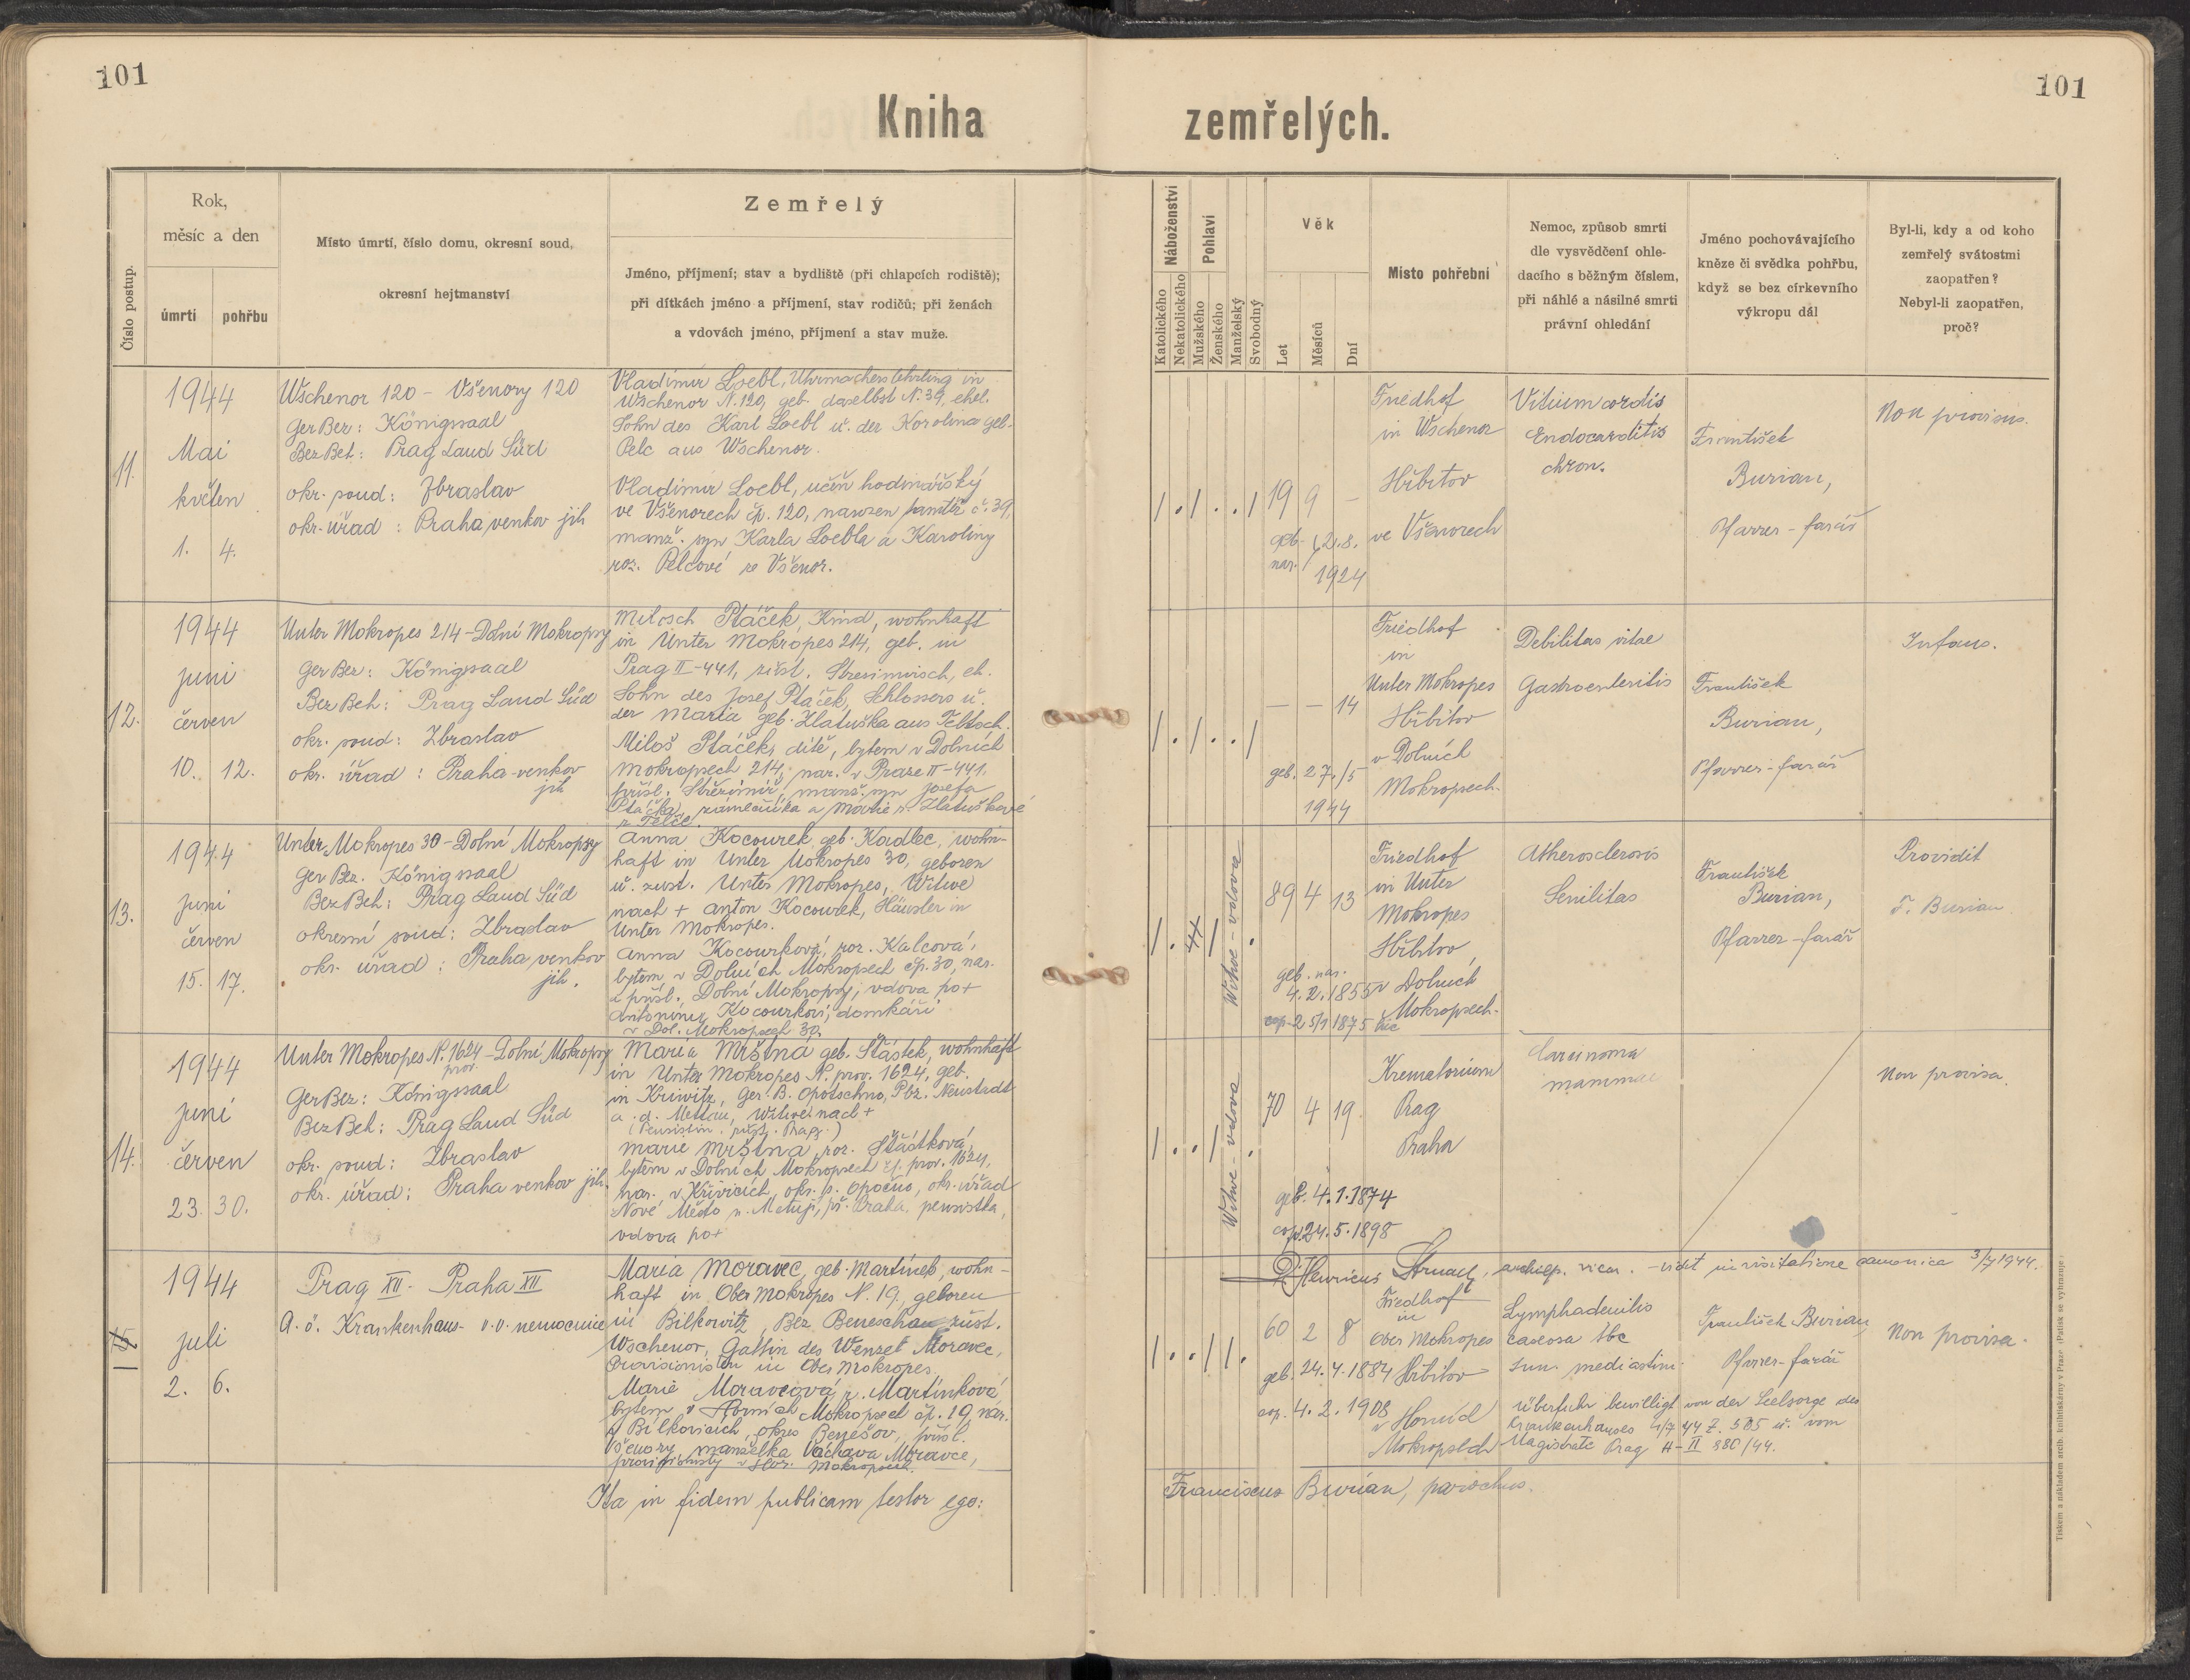 101
101
Kniha zemřelých.
Číslo postup.
Rok,
měsíc a den
úmrtí
pohřbu
Místo úmrtí, číslo domu, okresní soud,
okresní hejtmanství
Zemřelý
Jméno, příjmení; stav a bydliště (při chlapcích rodiště);
při dítkách jméno a příjmení, stav rodičů; při ženách
a vdovách jméno, příjmení a stav muže.
Náboženství
Katolického
Nekatolického
Pohlaví
Mužského
Ženského
Manželský
Svobodný
Věk
Let
Měsíců
Dní
Místo pohřební
Nemoc, způsob smrti
dle vysvědčení ohle-
dacího s běžným číslem,
při náhlé a násilné smrti
právní ohledání
Jméno pochovávajícího
kněze či svědka pohřbu,
když se bez církevního
výkropu dál
Byl-li, kdy a od koho
zemřelý svátostmi
zaopatřen?
Nebyl-li zaopatřen,
proč?
11.
1944
Mai
květen
1. 4.
Wschenor 120 - Všenory 120
Ger Bez: Königsaal
Bez Beh: Prag Land Süd
okr. soud: Zbraslav
okr. úřad: Praha venkov jih
Vladimír Loebl, Uhrmacherslehrling in
Wschenor N. 120, geb. daselbst N. 39, ehel.
Sohn des Karl Loebl u. der Karolina geb.
Pelc aus Wschenor.
Vladimír Loebl, učeň hodinářský
ve Všenorech čp. 120, narozen tamtéž č. 39,
manž. syn Karla Loebla a Karoliny
roz. Pelcové ze Všenor.
1 . 1 . . 1
19 9 -
geb. 2. 8.
nar. 1924
Friedhof
in Wschenor
Hřbitov
ve Všenorech
Vitium cordis
Endocarditis
chron.
František
Burian,
Pfarrer - farář
Non provisus.
12.
1944
juni
červen
10. 12.
Unter Mokropes 214 - Dolní Mokropsy
Ger Bez: Königsaal
Bez Beh: Prag Land Süd
okr. soud: Zbraslav
okr. úřad: Praha-venkov
jih
Milosch Ptáček, Kind, wohnhaft
in Unter Mokropes 214, geb. in
Prag II-441, zust. Stresimirsch, eh.
Sohn des Josef Ptáček, Schlossers u.
der Maria geb. Zlatuška aus Teltsch.
Miloš Ptáček, dítě, bytem v Dolních
Mokropsech 214, nar. v Praze II-441,
přísl. Střezimíř, manž. syn Josefa
Ptáčka, zámečníka a Marie r. Zlatuškové
z Telče
1 . 1 . . 1
- - 14
geb. 27./5
1944
Friedhof
in
Unter Mokropes
Hřbitov
v Dolních
Mokropsech.
Debilitas vitae
Gastroenteritis
František
Burian,
Pfarrer - farář
Infans.
13.
1944
juni
červen
15. 17.
Unter Mokropes 30 - Dolní Mokropsy
Ger Bez. Königsaal
Bez Beh: Prag Land Süd
okresní soud: Zbraslav
okr. úřad: Praha venkov
jih.
Anna Kocourek geb. Kadlec, wohn-
haft in Unter Mokropes 30, geboren
u. zust. Unter Mokropes, Witwe
nach + Anton Kocourek, Häusler in
Unter Mokropes.
Anna Kocourková, roz. Kalcová,
bytem v Dolních Mokropsech čp. 30, nar.
a přísl. Dolní Mokropsy, vdova po +
Antonínu Kocourkovi, domkáři
v Dol. Mokropsech 30.
Witwe - vdova
89 4 13
geb. nar.
4. 2. 1855
cop. 25/1 1875
Friedhof
in Unter
Mokropes
Hřbitov
v Dolních
Mokropsech.
Atherosclerosis
Senilitas
František
Burian,
Pfarrer - farář
Providit
F. Burian
14.
1944
juni
červen
23. 30.
Unter Mokropes N. 1624 - Dolní Mokropsy
prov.
Ger Bez: Königsaal
Bez Beh: Prag Land Süd
okr. soud: Zbraslav
okr. úřad: Praha venkov jih.
Maria Mršina geb. Šťástek, wohnhaft
in Unter Mokropes N. prov. 1624, geb.
in Kriwitz, Ger. B. Opotschno, Pbz. Neustadt
a. d. Mettau, Witwe nach +
(Pensistin. zust. Prag.)
Marie Mršina, roz. Šťástková,
bytem v Dolních Mokropsech čp. prov. 1624,
nar. v Křivicích, okr. s. Opočno, okr. úřad
Nové Město n. Metují, př. Praha, pensistka,
vdova po +
1 . . 1
Witwe - vdova
70 4 19
geb. 4. 1. 1874
cop. 24. 5. 1898
Krematorium
Prag
Praha
Carcinoma
mammae
Non provisa.
Henricus Strnad, archiep. vicar. - vidit in visitatione canonica 3/7 1944.
15
1944
juli
2. 6.
Prag XII - Praha XII
A. ö. Krankenhaus - v. v. nemocnice
Maria Moravec, geb. Martínek, wohn-
haft in Ober Mokropes N. 19, geboren
in Bilkowitz, Bez. Beneschau zust.
Wschenor, Gattin des Wenzel Moravec,
Provisionisten in Ober Mokropes.
Marie Moravcová, r. Martínková
bytem v Horních Mokropsech čp. 19, nar.
v Bílkovicích, okres Benešov, přísl.
Všenory, manželka Václava Moravce,
provisionisty v Hor. Mokropsech.
1 . . 1 1 .
60 2 8
geb. 24. 4. 1884
cop. 4. 2. 1908
Friedhof
in
Ober Mokropes
Hřbitov
v Horních
Mokropsech
Lymphadenitis
caseosa tbc
tum. mediastini.
František Burian
Pfarrer - farář
Non provisa.
Überfuhr bewilligt von der Seelsorge des
Krankenhauses 4/7 44 Z. 505 u. vom
Magistrate Prag H-II 880/44.
Ita in fidem publicam testor ego:
Franciscus Burian, parochus.